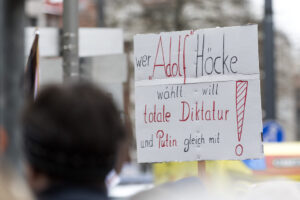 wer "Adolf" Höcke
wählt - will
totale Diktatur
und Putin gleich mit !